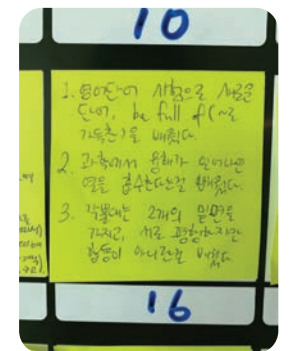 10
1. 영어단어 시험으로 새로운
단어, be full of (~로
가득찬)을 배웠다.
2. 과학에서 용해가 일어나면
열을 흡수한다는걸 배웠다.
3. 각뿔대는 2개의 밑면을
가지고, 서로 평행하지만
합동이 아니란걸 배웠다.
16